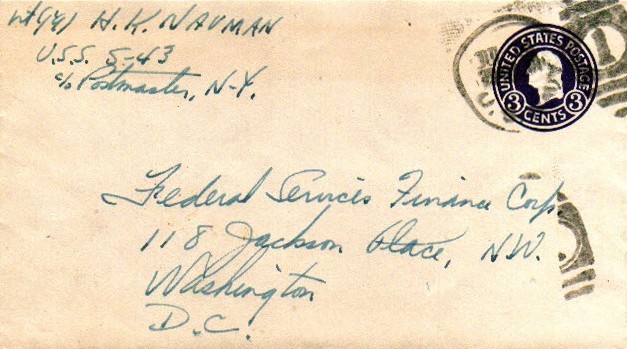 H. K. NAUMAN
U.S.S. S-43
c/o Postmaster, N-Y.
UNITED STATES POSTAGE
3 CENTS 3
Federal Services Finance Corp
118 Jackson Place, N.W.
Washington
D.C.